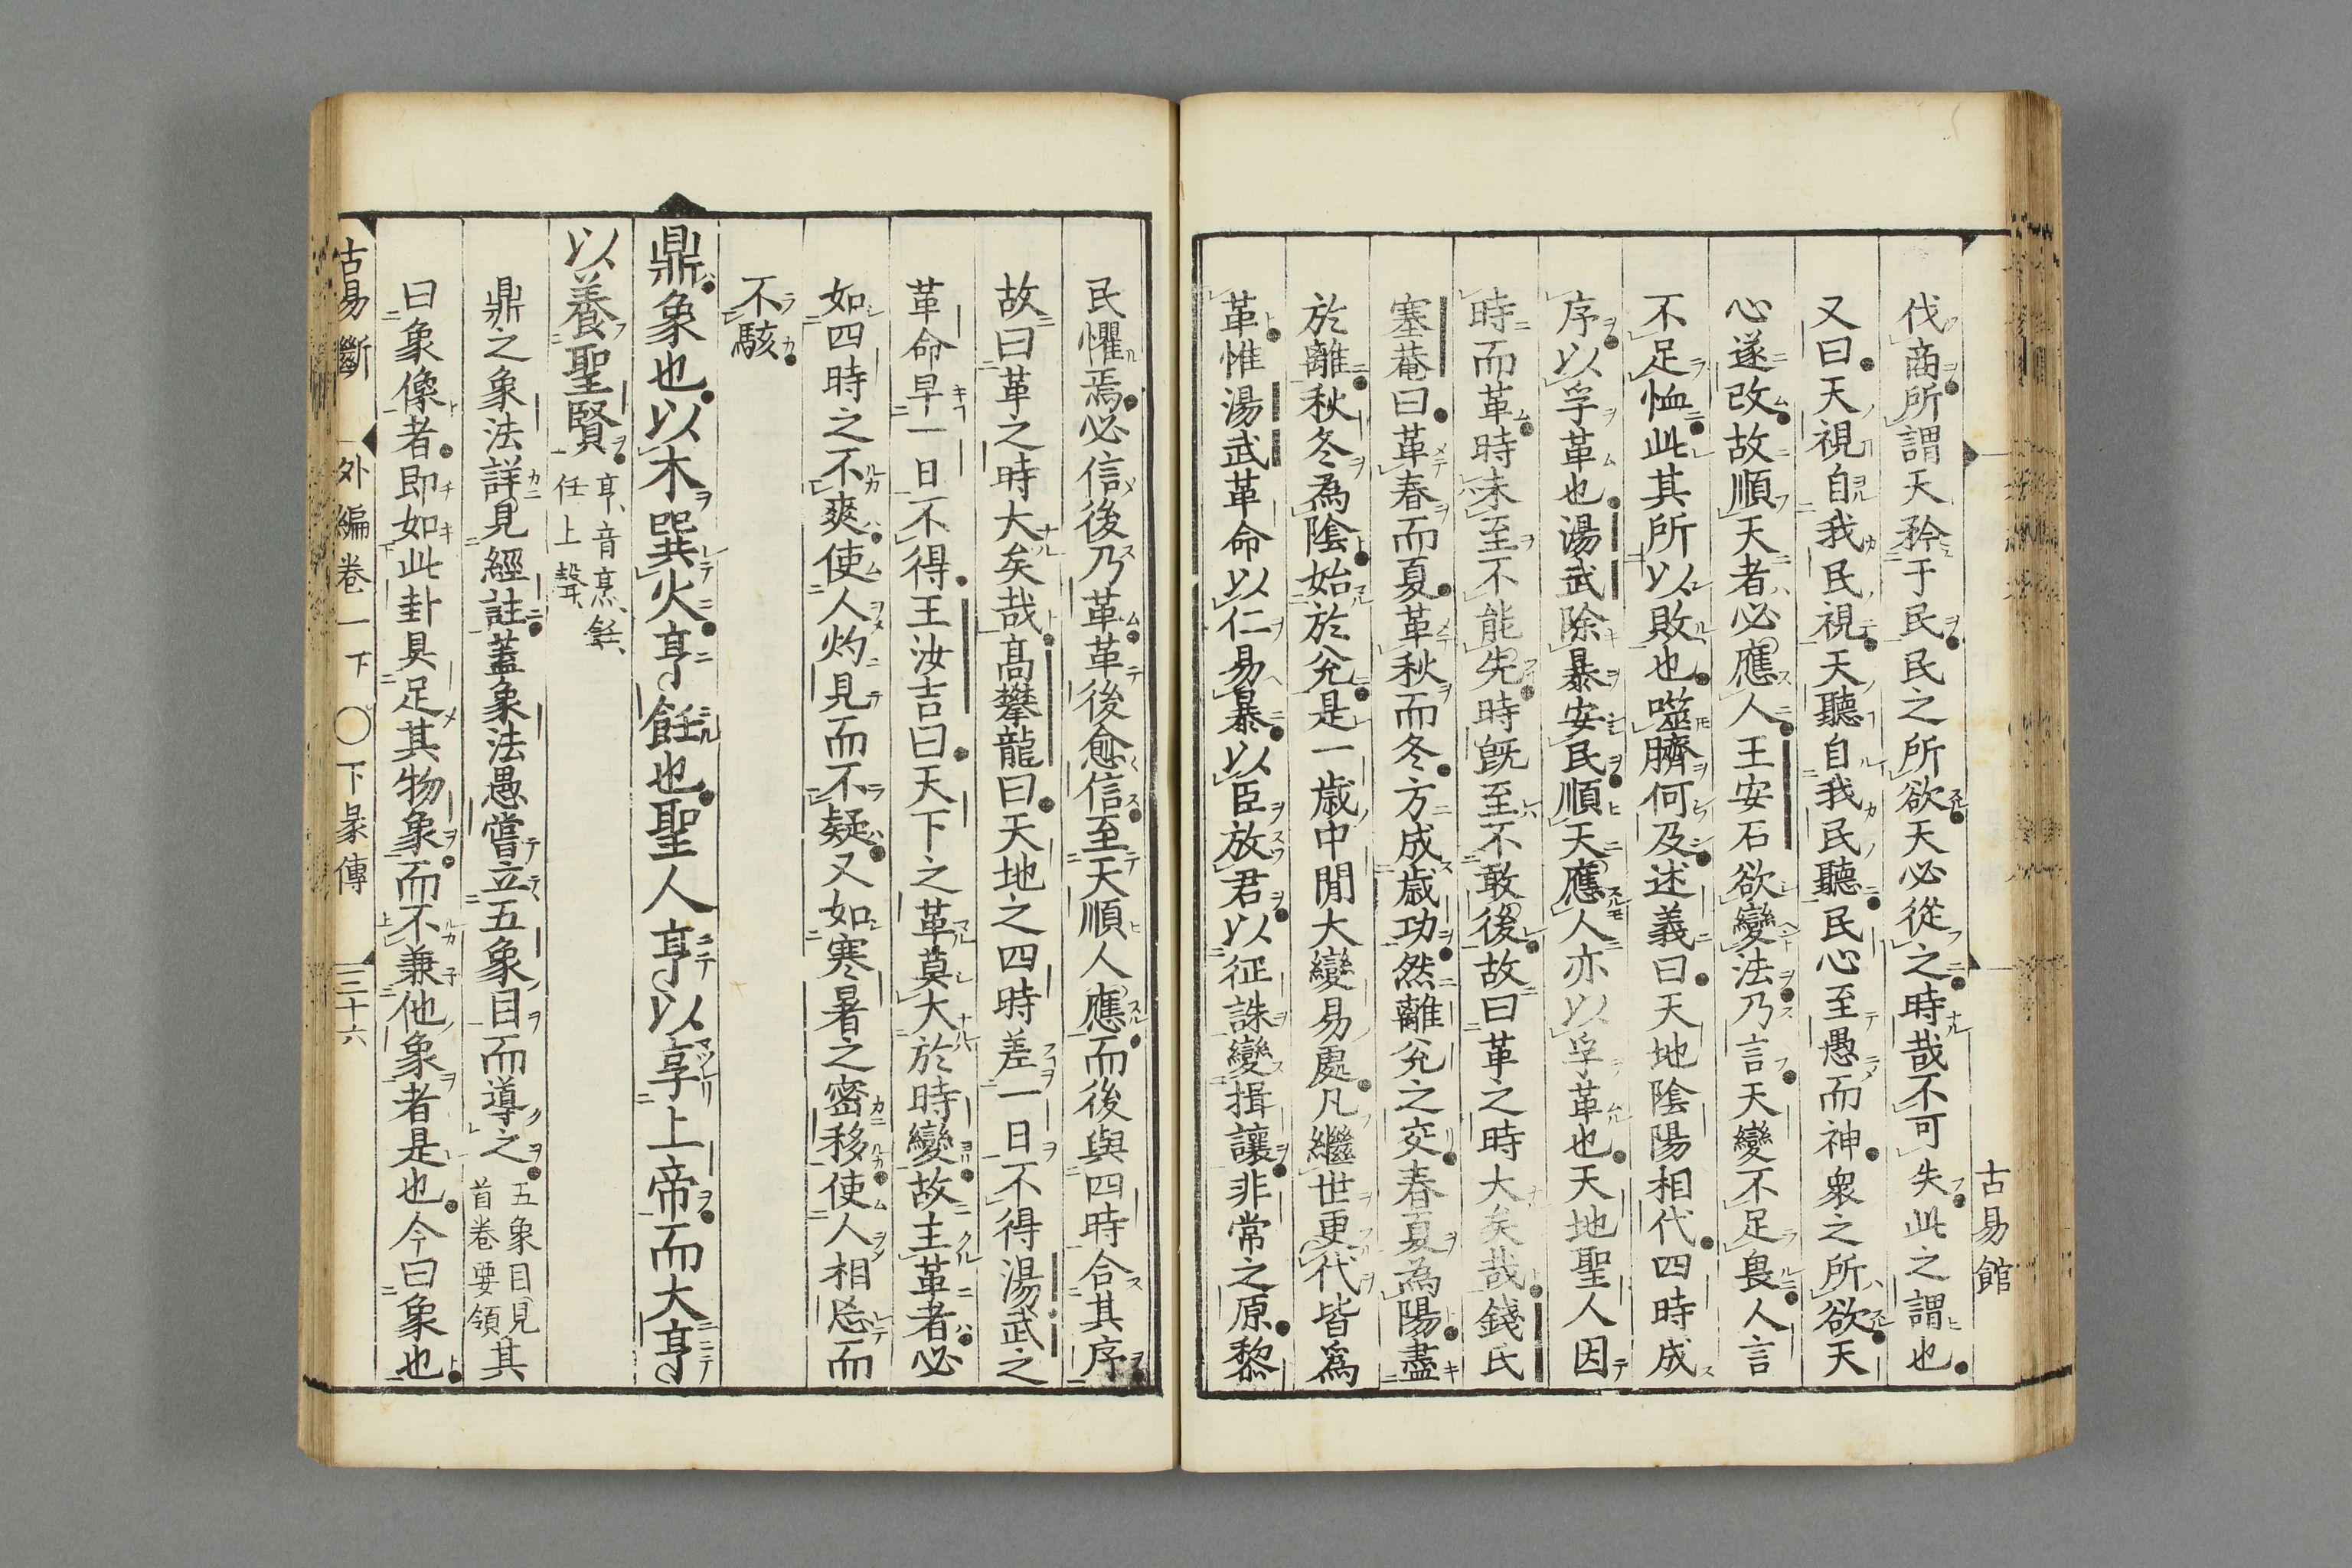 伐商所謂天矜于民民之所欲天必從之時哉不可失此之謂也
又曰天視自我民視天聽自我民聽民心至愚而神衆之所欲天
心遂改故順天者必應人王安石欲變法乃言天變不足畏人言
不足恤此其所以敗也噬臍何及述義曰天地陰陽相代四時成
序以孚革也湯武除暴安民順天應人亦以孚革也天地聖人因
時而革時未至不能先時旣至不敢後故曰革之時大矣哉錢氏
塞菴曰革春而夏革秋而冬方成歲功然離兌之交春夏為陽盡
於離秋冬為陰始於兌是一歲中間大變易處凡繼世更代皆爲
革惟湯武革命以仁易暴以臣放君以征誅變揖讓非常之原黎
古易館
民懼焉必信後乃革革後愈信至天順人應而後與四時合其序
故曰革之時大矣哉高攀龍曰天地之四時差一日不得湯武之
革命早一日不得王汝吉曰天下之革莫大於時變故主革者必
如四時之不爽使人灼見而不疑又如寒暑之密移使人相忘而
不駭
鼎象也以木巽火亨飪也聖人亨以享上帝而大亨
以養聖賢亨、音烹、飪、
任上聲、
鼎之象法詳見經註蓋象法愚嘗立五象目而導之五象目見其
首卷要領
曰象像者即如此卦具足其物象而不兼他象者是也今曰象也
古易斷 外編卷一下 〇下彖傳 三十六